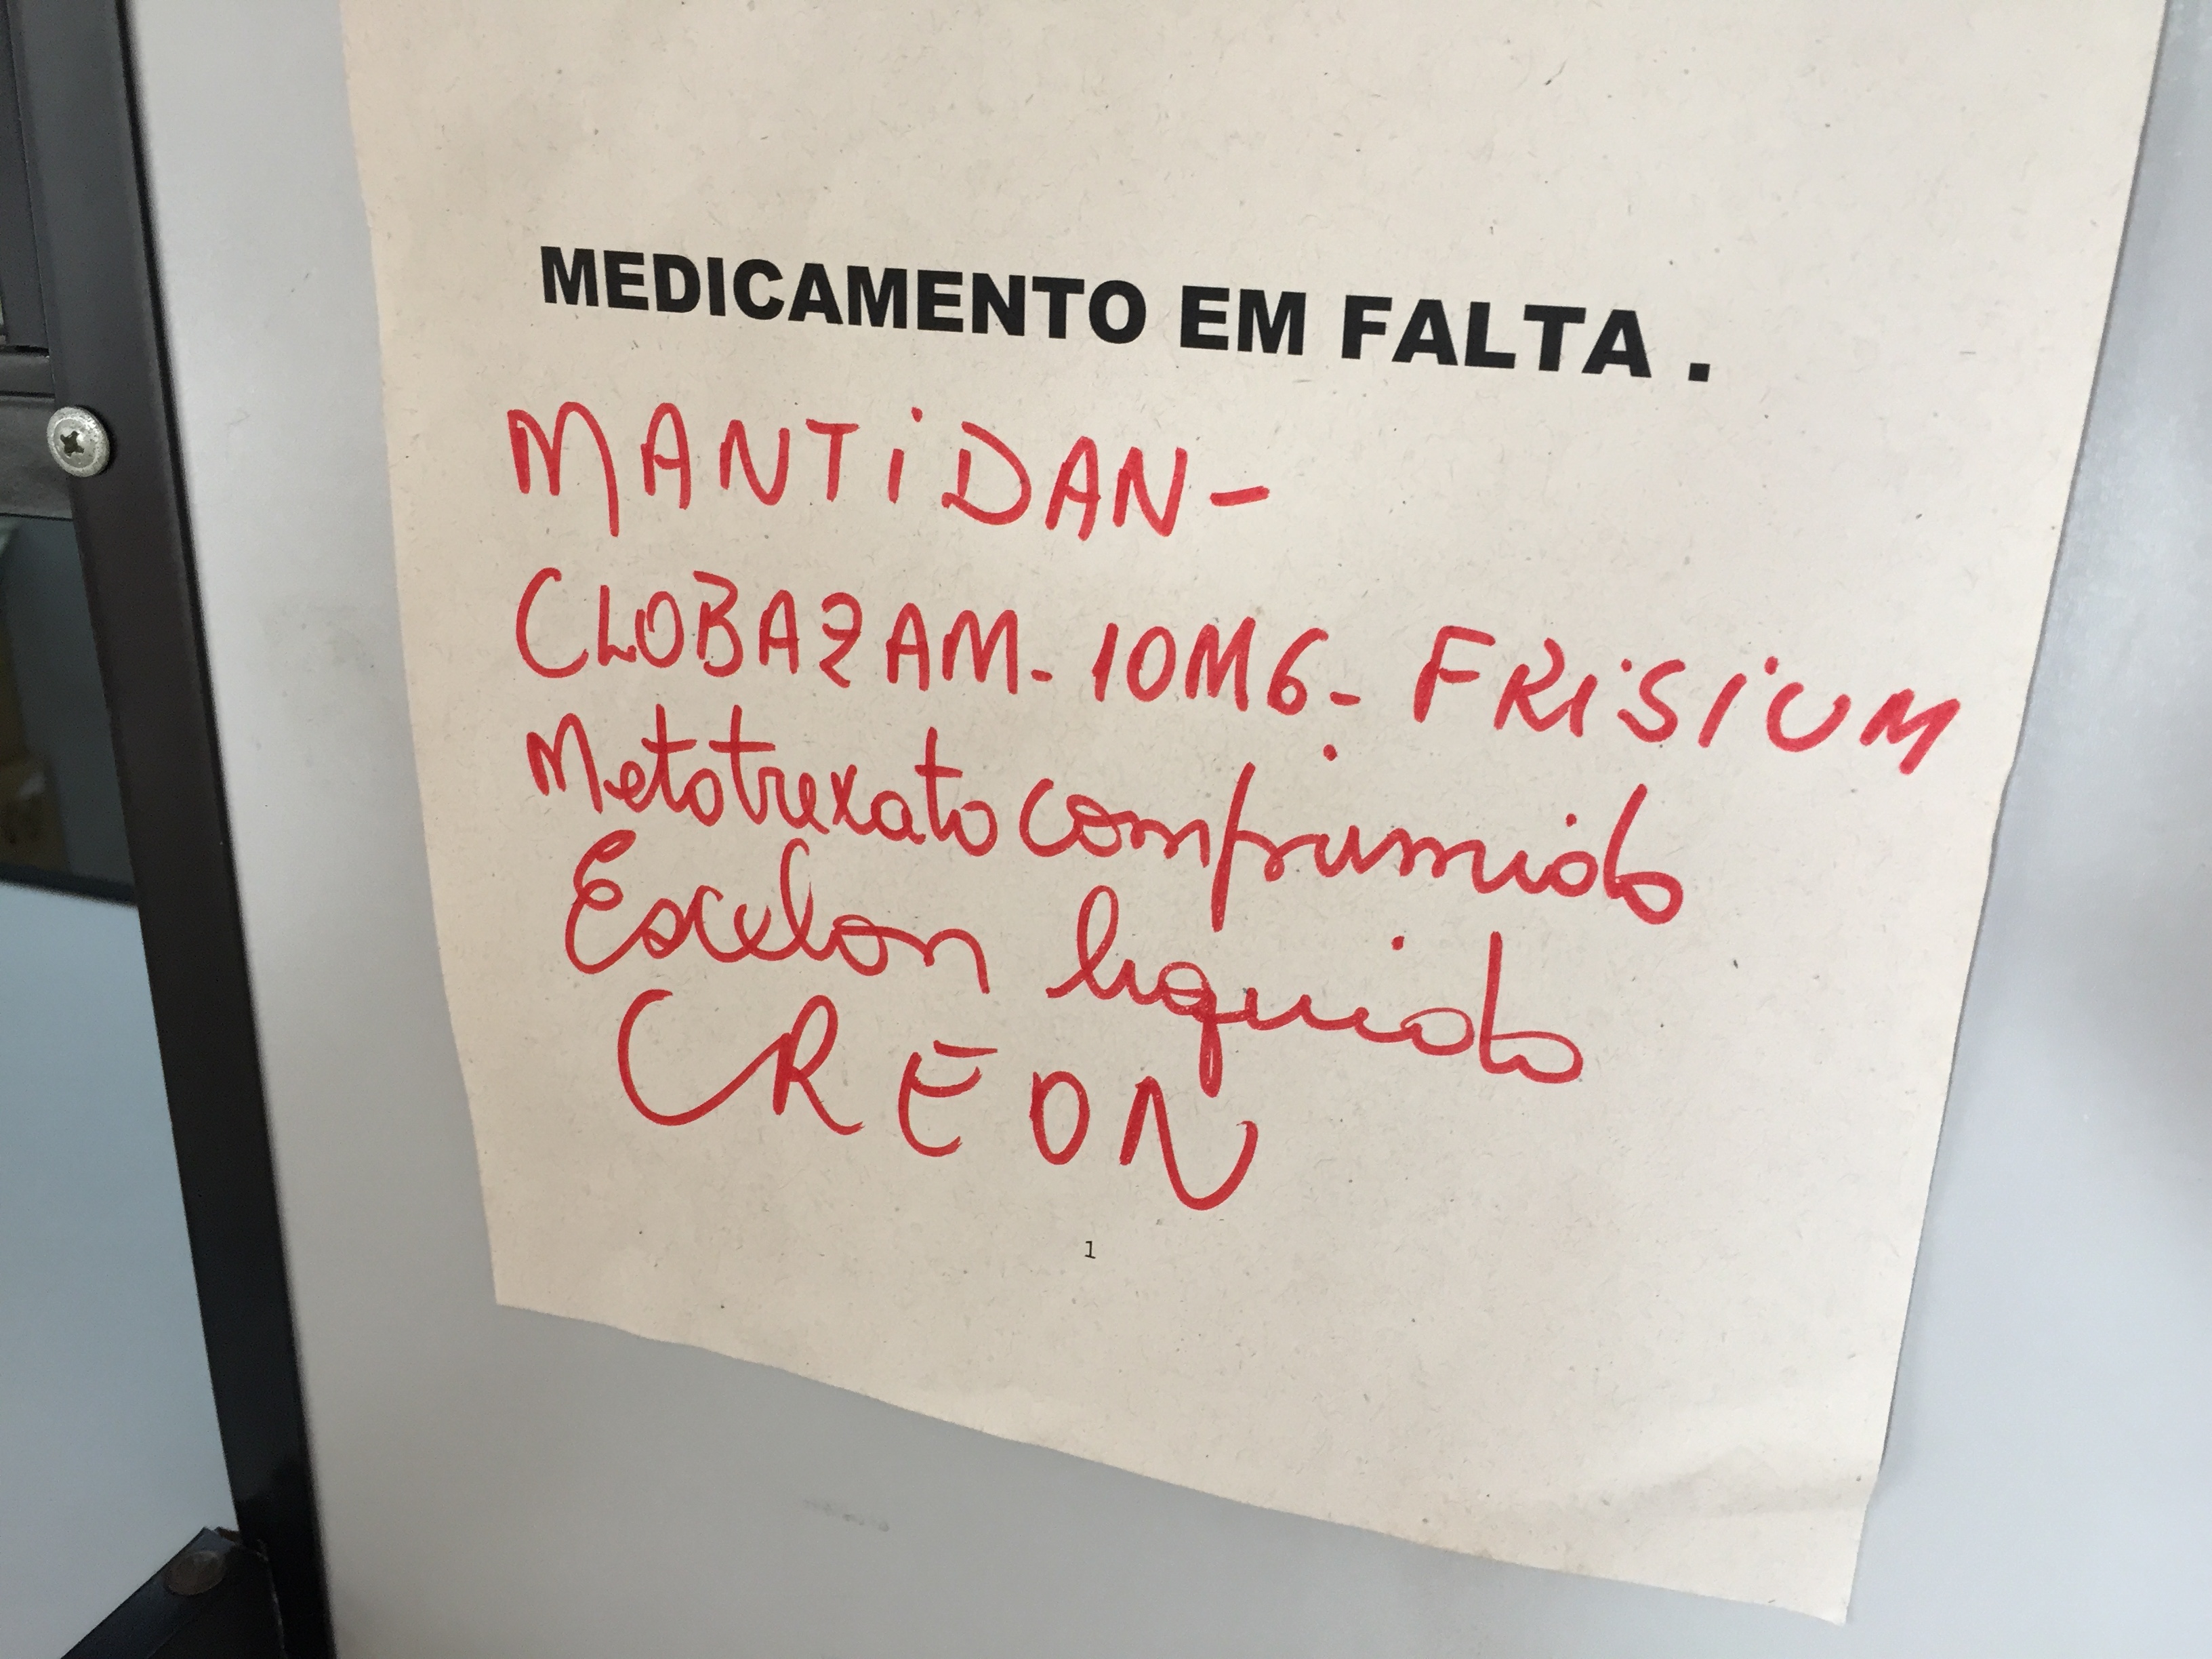 MEDICAMENTO EM FALTA .
MANTiDAN-
CLOBAZAM-10MG-FRiSiUM
Metotrexato comprimido
Excelon liquido
CREON
1